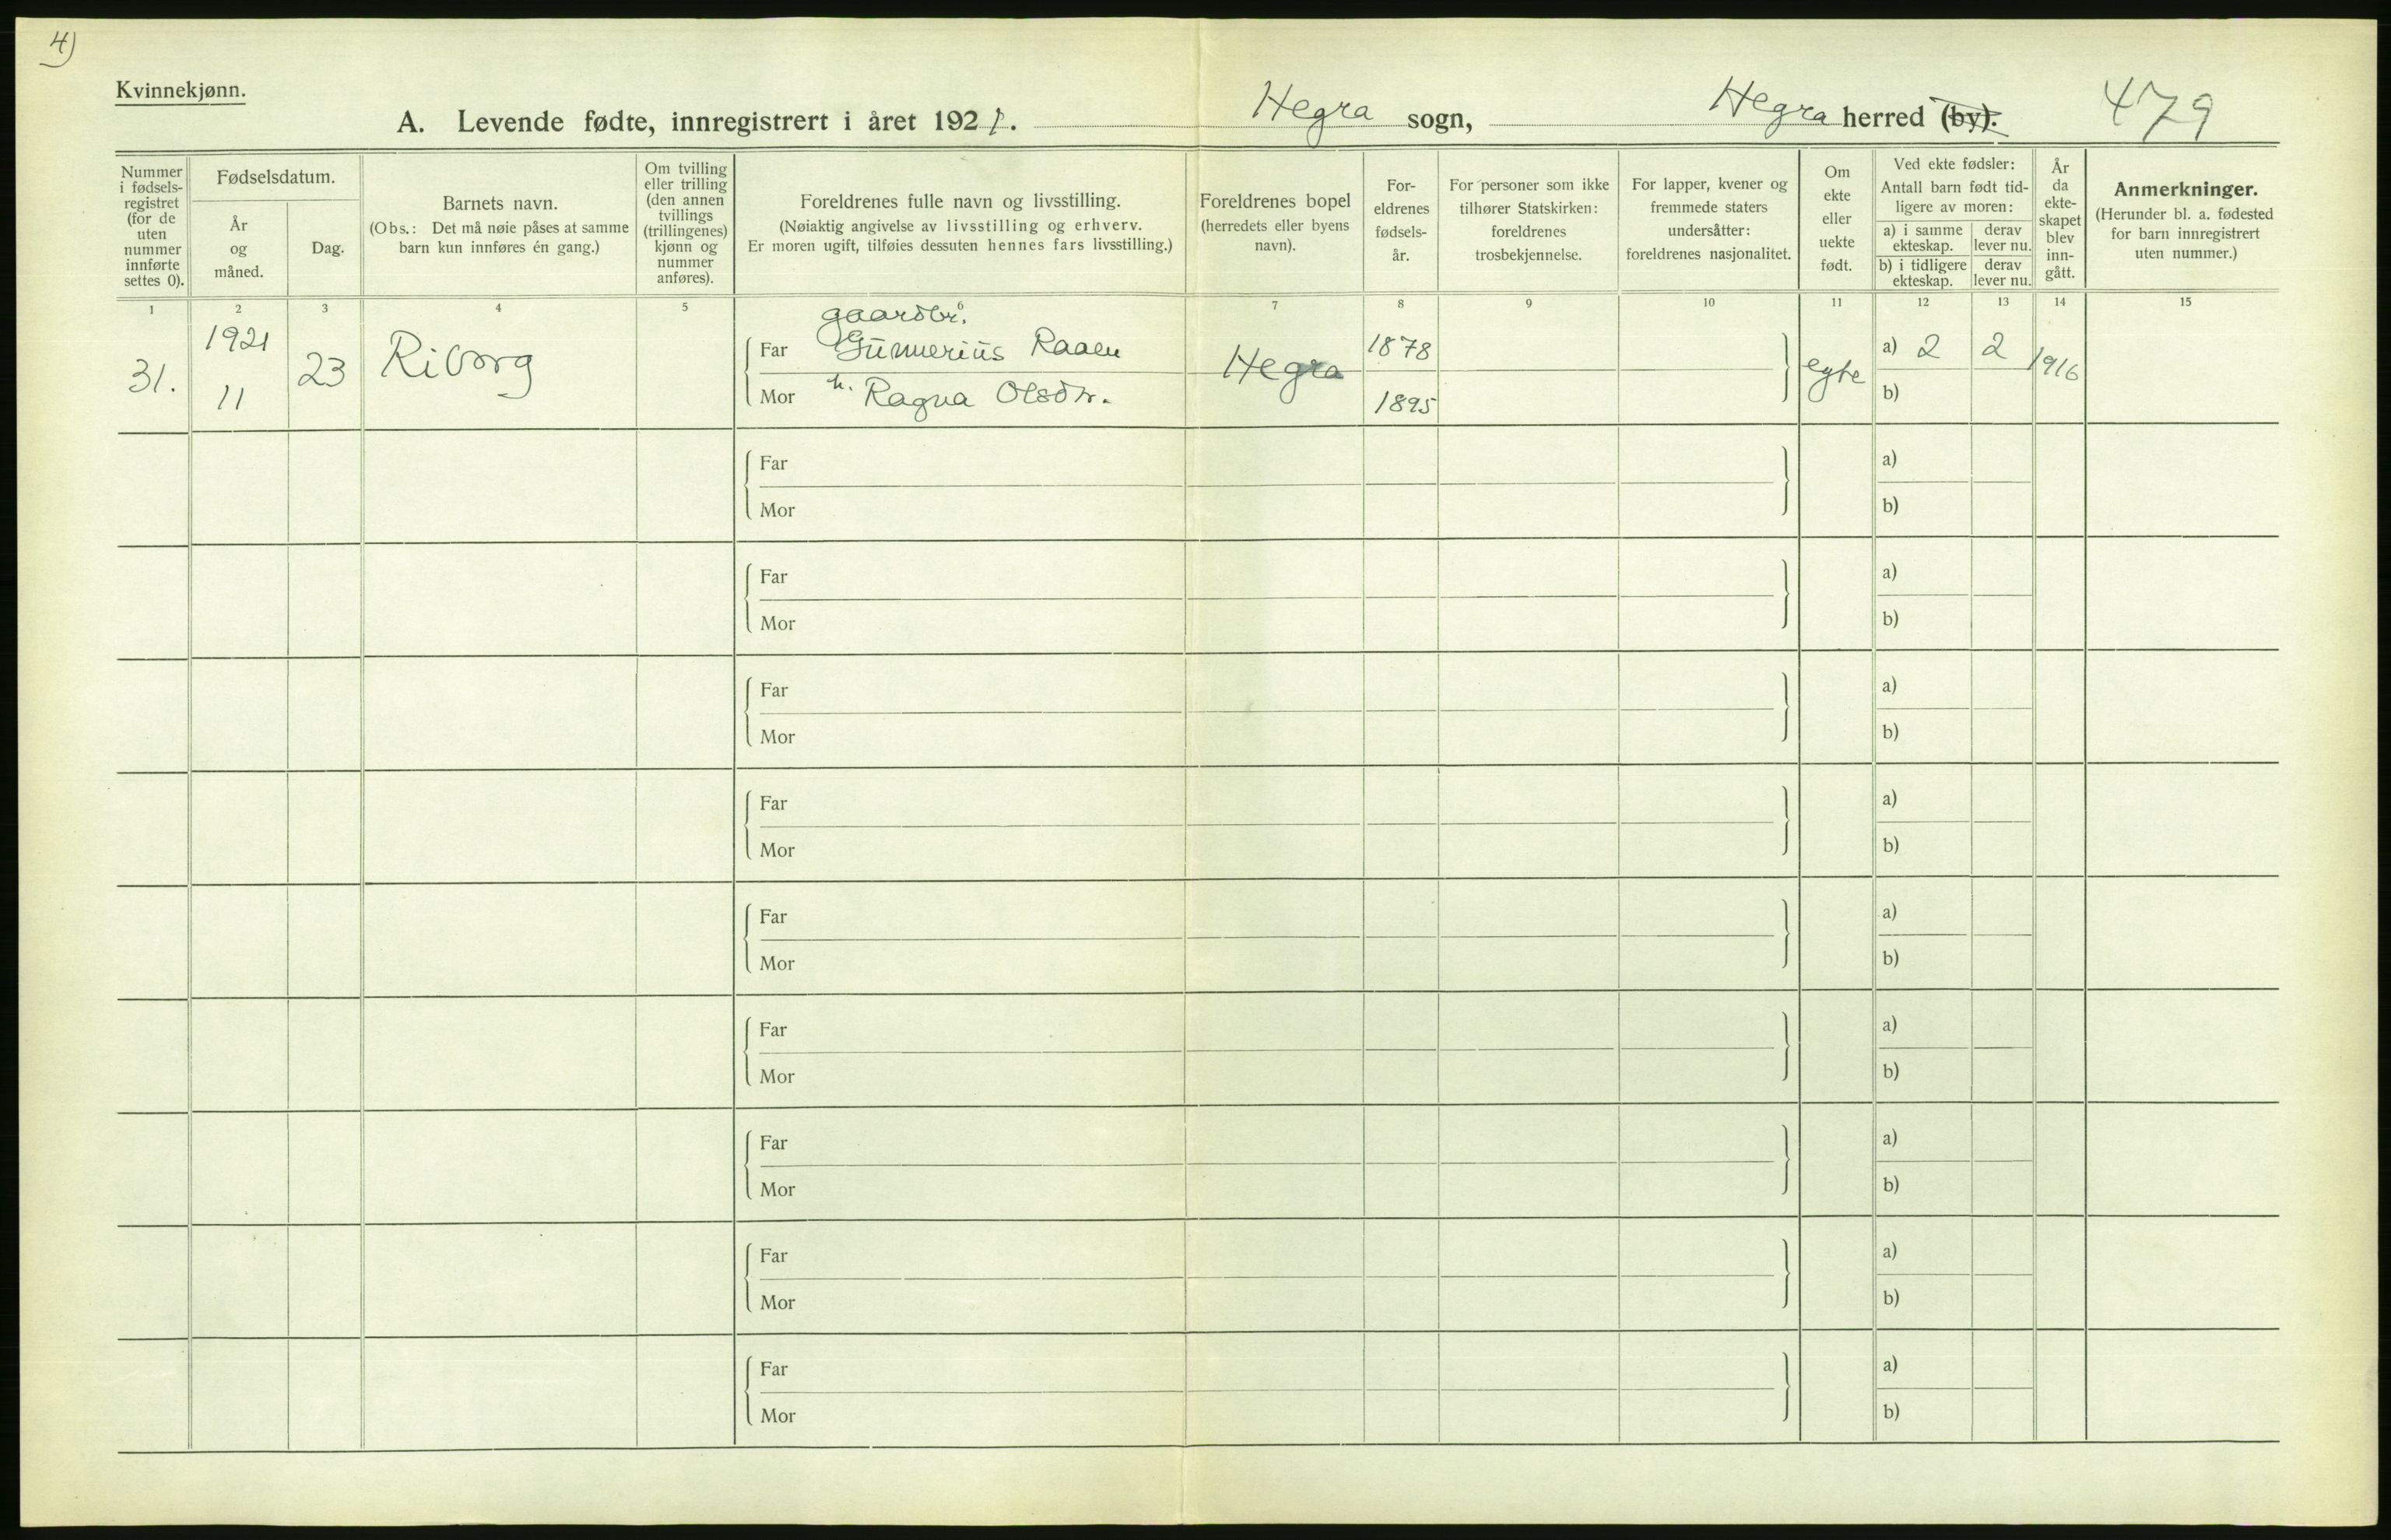 4)
Kvinnekjønn.
A. Levende fødte, innregistrert i året 1921. Hegra sogn, Hegra herred (by). 479
Nummer i fødsels-registret (for de uten nummer innførte settes 0).
Fødselsdatum.
År og måned.
Dag.
Barnets navn.
(Obs.: Det må nøie påses at samme barn kun innføres én gang.)
Om tvilling eller trilling (den annen tvillings (trillingenes) kjønn og nummer anføres).
Foreldrenes fulle navn og livsstilling.
(Nøiaktig angivelse av livsstilling og erhverv.
Er moren ugift, tilføies dessuten hennes fars livsstilling.)
Foreldrenes bopel
(herredets eller byens navn).
For-eldrenes fødsels-år.
For personer som ikke tilhører Statskirken: foreldrenes trosbekjennelse.
For lapper, kvener og fremmede staters undersåtter: foreldrenes nasjonalitet.
Om ekte eller uekte født.
Ved ekte fødsler:
Antall barn født tid-ligere av moren:
a) i samme ekteskap.
derav lever nu.
b) i tidligere ekteskap.
derav lever nu.
År da ekte-skapet blev inn-gått.
Anmerkninger.
(Herunder bl. a. fødested for barn innregistrert uten nummer.)
1 2 3 4 5 6 7 8 9 10 11 12 13 14 15
gaardbr.
31. 1921 11 23 Riborg
Far Gunnerius Raaen
Mor h. Ragna Olsdtr.
Hegra
1878
1895
egte
a) 2 2 1916
b)
Far a)
Mor b)
Far a)
Mor b)
Far a)
Mor b)
Far a)
Mor b)
Far a)
Mor b)
Far a)
Mor b)
Far a)
Mor b)
Far a)
Mor b)
Far a)
Mor b)